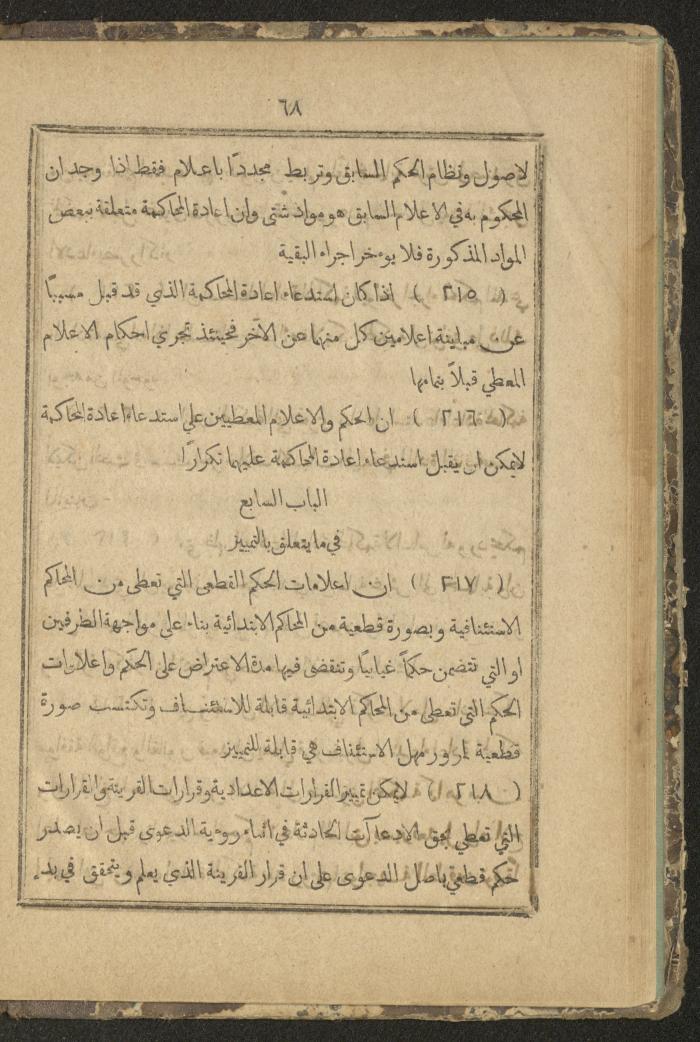 ٦٨
لاصول ونظام الحكم السابق وتربط مجددًا باعلام فقط اذا وجد ان
المحكوم به في الاعلام السابق هو مواد شتى وان اعادة المحاكمة متعلقة ببعض
المواد المذكورة فلا يوءخر اجراء البقية
( ٢١٥ ) اذا كان استدعاء اعادة المحاكمة الذي قد قبل مسببًا
عن مباينة اعلامين كل منهما عن الآخر فحينئذ تجري احكام الاعلام
المعطي قبلاً بتمامها
( ٢١٦ ) ان الحكم والاعلام المعطيين علي استدعاء اعادة المحاكمة
لايمكن ان يقبل استدعاء اعادة المحاكمة عليهما تكرارًا
الباب السابع
في ما يتعلق بالتمييز
( ٢١٧ ) ان اعلامات الحكم القطعى التي تعطى من المحاكم
الاستئنافية وبصورة قطعية من المحاكم الابتدائية بناء على مواجهة الطرفين
او التي تتضمن حكمًا غيابيًا وتنقضى فيها مدة الاعتراض على الحكم واعلامات
الحكم التي تعطى من المحاكم الابتدائية قابلة للاستئنساف وتكتسب صورة
قطعية بمرور مهل الاستئناف هي قابلة للتمييز
( ٢١٨ ) لايمكن تمييز القرارات الاعدادية وقرارات القرينة والقرارات
التي تعطي بحق الادعاآت الحادثة في اثناء روءية الدعوى قبل ان يصدر
حكم قطعي باصل الدعوى على ان قرار القرينة الذي يعلم ويتحقق في بدء